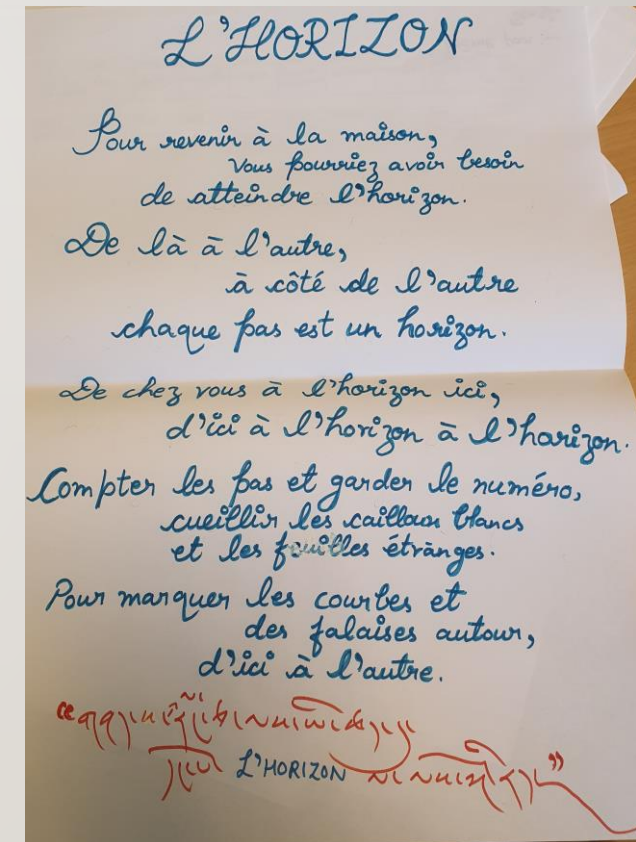 L'HORIZON
Pour revenir à la maison,
vous pourriez avoir besoin
de atteindre l'horizon.
De là à l'autre,
à côté de l'autre
chaque pas est un horizon.
De chez vous à l'horizon ici,
d'ici à l'horizon à l'horizon.
Compter les pas et garder le numéro,
cueillir les cailloux blancs
et les feuilles étranges.
Pour marquer les courbes et
des falaises autour,
d'ici à l'autre.
L'HORIZON